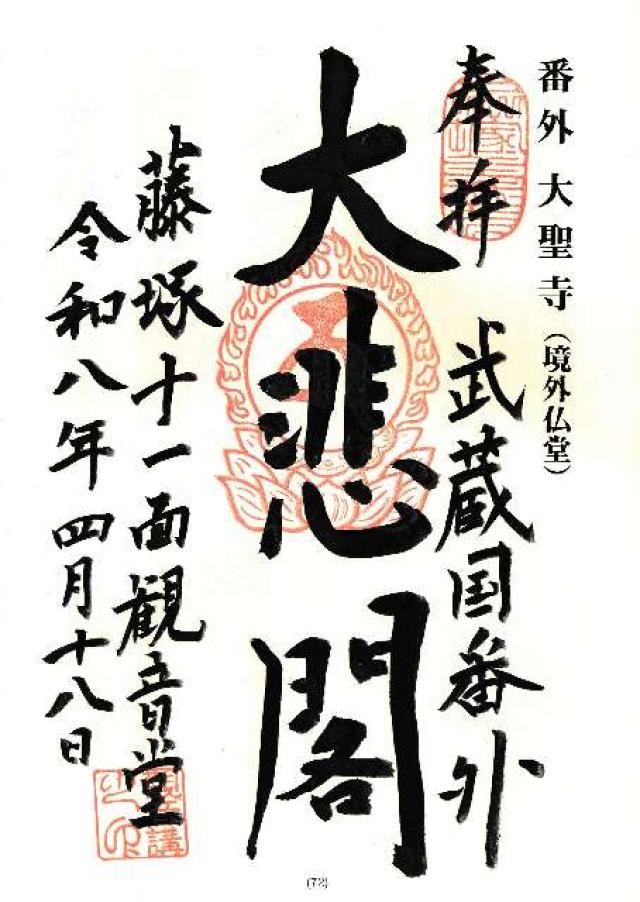 番外 大聖寺（境外仏堂）
奉拝
武蔵国番外
大悲閣
藤塚十一面観音堂
令和八年四月十八日
(72)